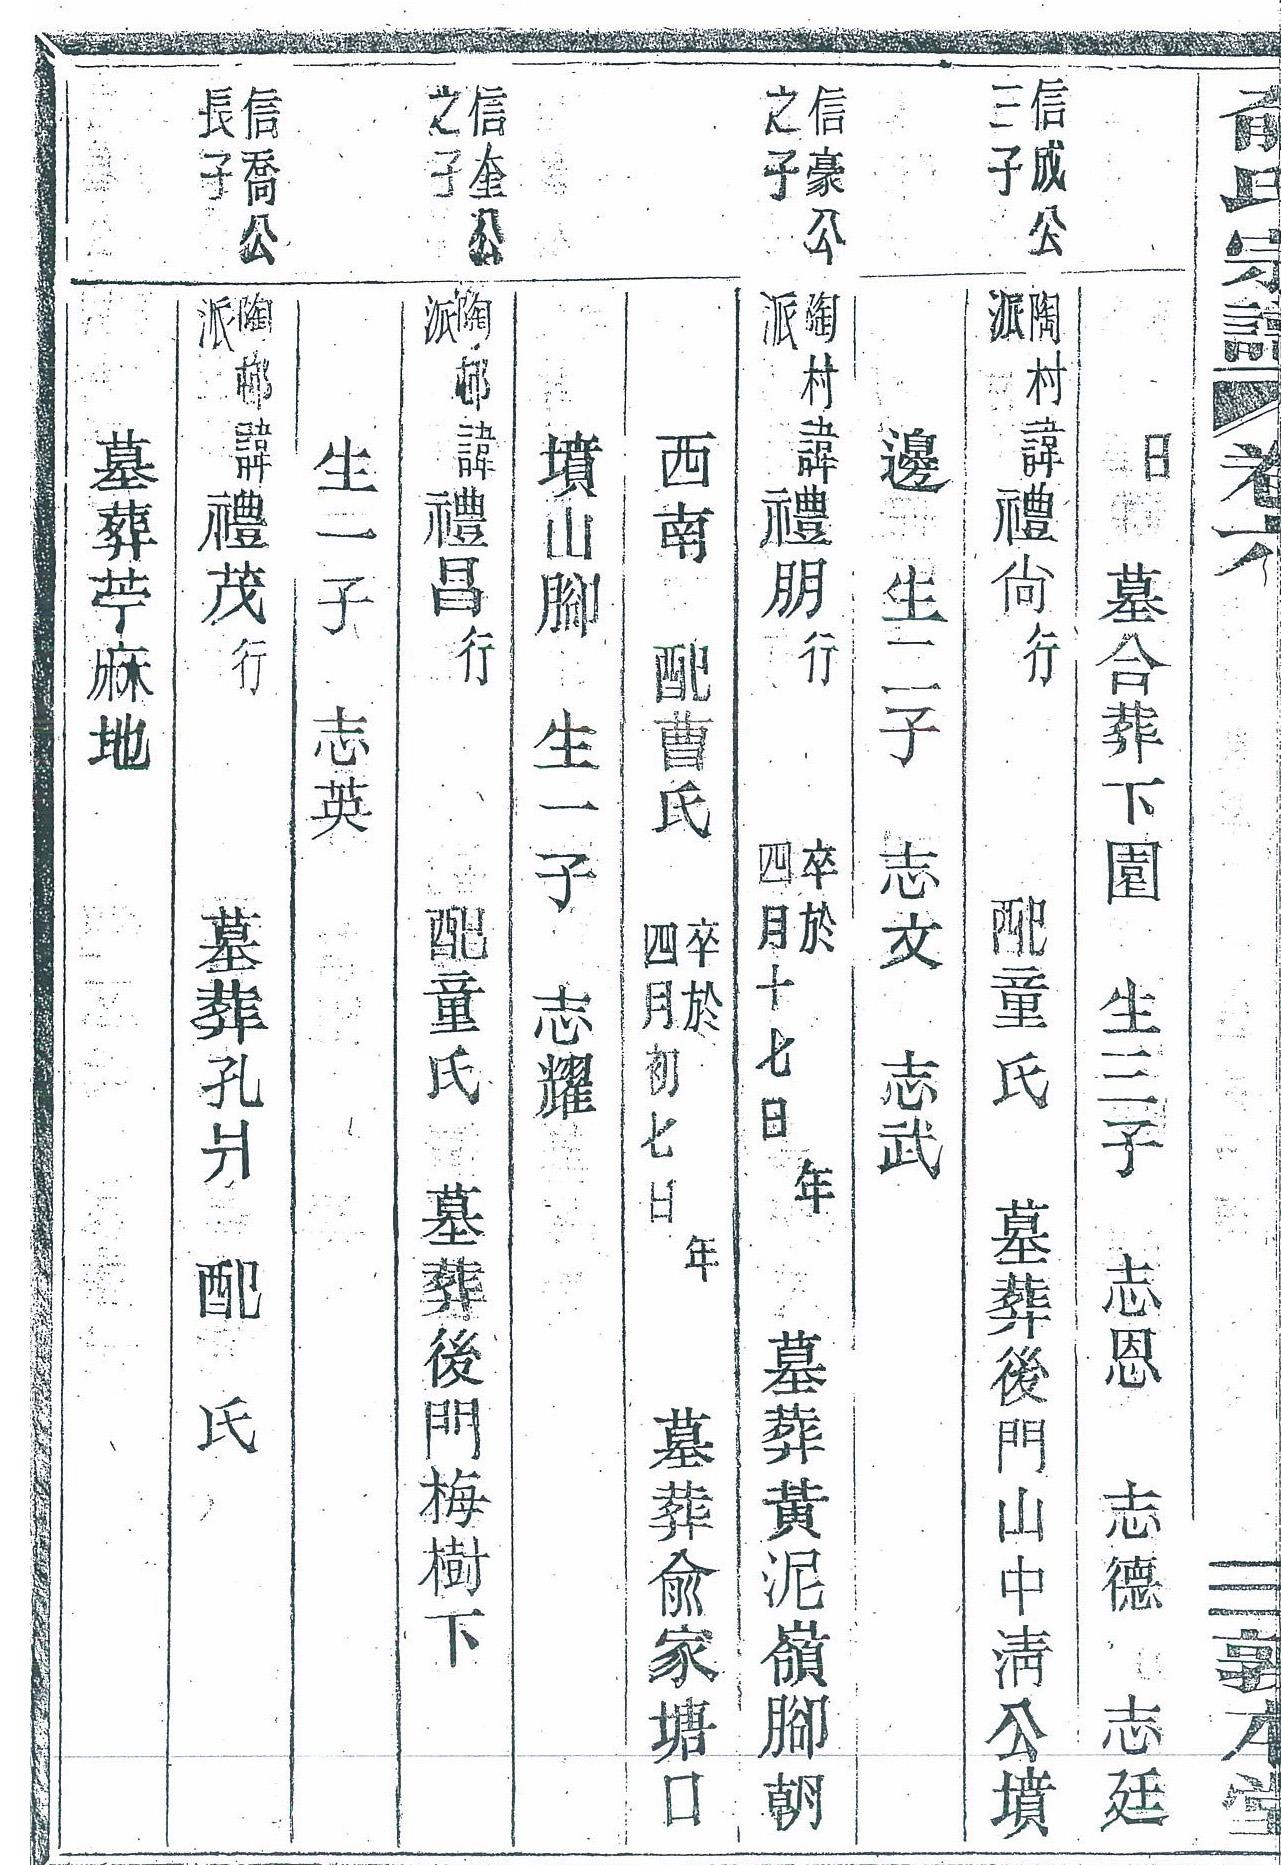 俞氏宗譜 卷六 三 敦本堂
日 墓合葬下園 生三子 志恩 志德 志廷
信成公
三子
陶村
派
諱禮尙行 配童氏 墓葬後門山中淸公墳
邊 生二子 志文 志武
信豪公
之子
陶村
派
諱禮朋行 卒於 年
四月十七日
墓葬黃泥嶺腳朝
西南 配曹氏 卒於 年
四月初七日
墓葬俞家塘口
墳山腳 生一子 志耀
信奎公
之子
陶邨
派
諱禮昌行 配童氏 墓葬後門梅樹下
生一子 志英
信喬公
長子
陶邨
派
諱禮茂行 墓葬孔 配 氏
墓葬苧麻地